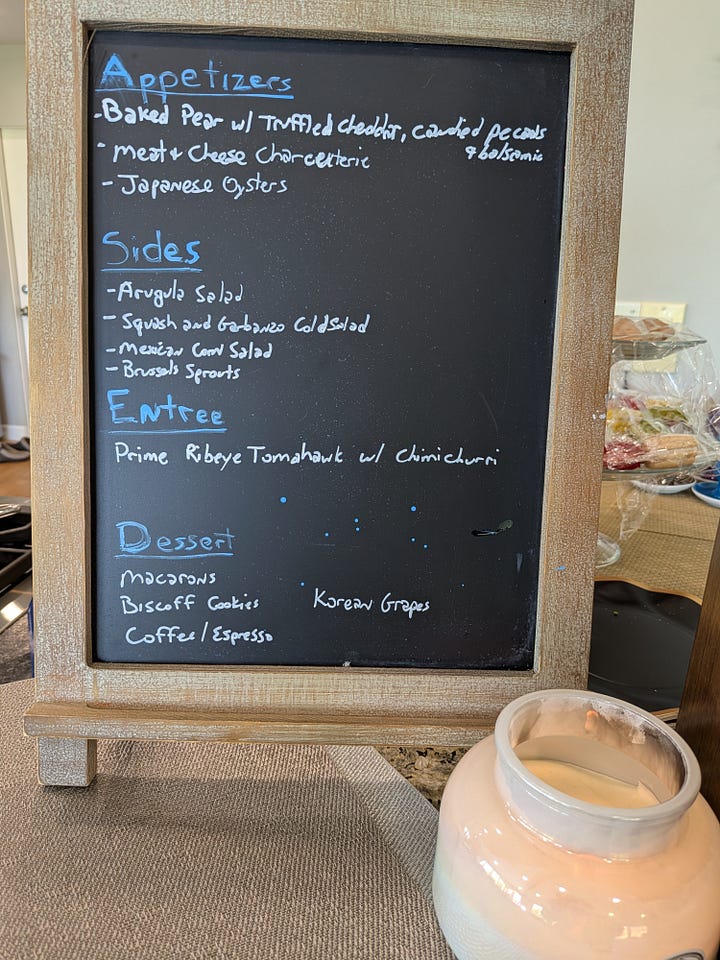 Appetizers
-Baked Pear w/ Truffled cheddar, candied pecans
& balsamic
- Meat + Cheese Charcuterie
- Japanese Oysters
Sides
- Arugula Salad
- Squash and Garbanzo Cold Salad
- Mexican Corn Salad
- Brussels Sprouts
Entree
Prime Ribeye Tomahawk w/ Chimichurri
Dessert
Macarons
Biscoff Cookies Korean Grapes
Coffee/Espresso